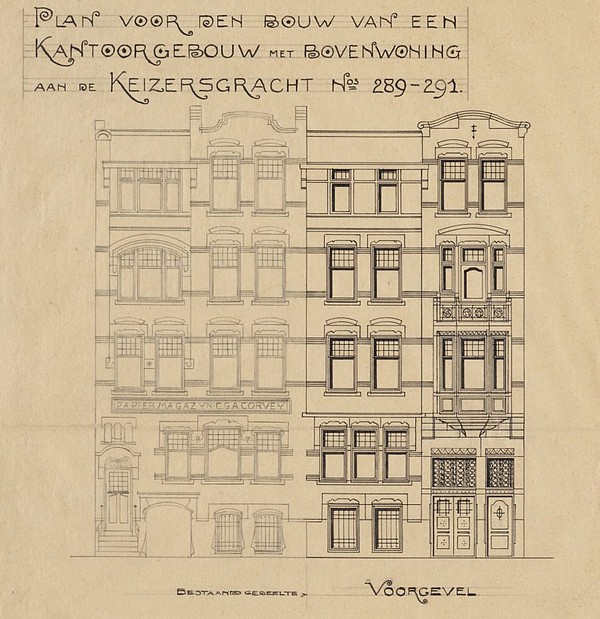 PLAN VOOR DEN BOUW VAN EEN
KANTOORGEBOUW MET BOVENWONING
AAN DE KEIZERSGRACHT Nos 289-291.
PAPIERMAGAZYN C.G.A. CORVEY
BESTAAND GEDEELTE
VOORGEVEL